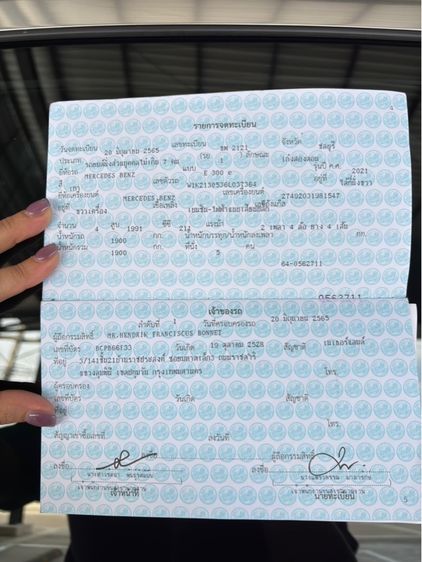 4
รายการจดทะเบียน
วันจดทะเบียน 20 มิถุนายน 2565 เลขทะเบียน ขพ 2121 จังหวัด ชลบุรี
ประเภท รถยนต์นั่งส่วนบุคคลไม่เกิน 7 คน (รย 1) ลักษณะ เก๋งสองตอน
ยี่ห้อรถ MERCEDES BENZ แบบ E 300 e รุ่นปี ค.ศ. 2021
สี เทา เลขตัวรถ อยู่ที่
ยี่ห้อเครื่องยนต์ MERCEDES BENZ เลขเครื่องยนต์ 27492031981547
อยู่ที่ ขวาเครื่อง เชื้อเพลิง เลขถังแก๊ส
จำนวน 4 สูบ 1991 ซีซี 211 แรงม้า 2 เพลา 4 ล้อ ยาง 4 เส้น
น้ำหนักรถ 1900 กก. น้ำหนักบรรทุก/น้ำหนักลงเพลา กก.
น้ำหนักรวม 1900 กก. ที่นั่ง 5 คน
64-0562711
0562711
เจ้าของรถ
ลำดับที่ 1 วันที่ครอบครองรถ 20 มิถุนายน 2565
ผู้ถือกรรมสิทธิ์ MR.HENDRIK FRANCISCUS BONNET
เลขที่บัตร BCPB66F33 วันเกิด 19 ตุลาคม 2528 สัญชาติ เนเธอร์แลนด์
ที่อยู่ โทร.
เขตปทุมวัน กรุงเทพมหานคร
ผู้ครอบครอง
เลขที่บัตร วันเกิด สัญชาติ
ที่อยู่ โทร.
สัญญาเช่าซื้อเลขที่ ลงวันที่
ผู้ถือกรรมสิทธิ์
ลงชื่อ ลงชื่อ
เจ้าหน้าที่ นายทะเบียน
5